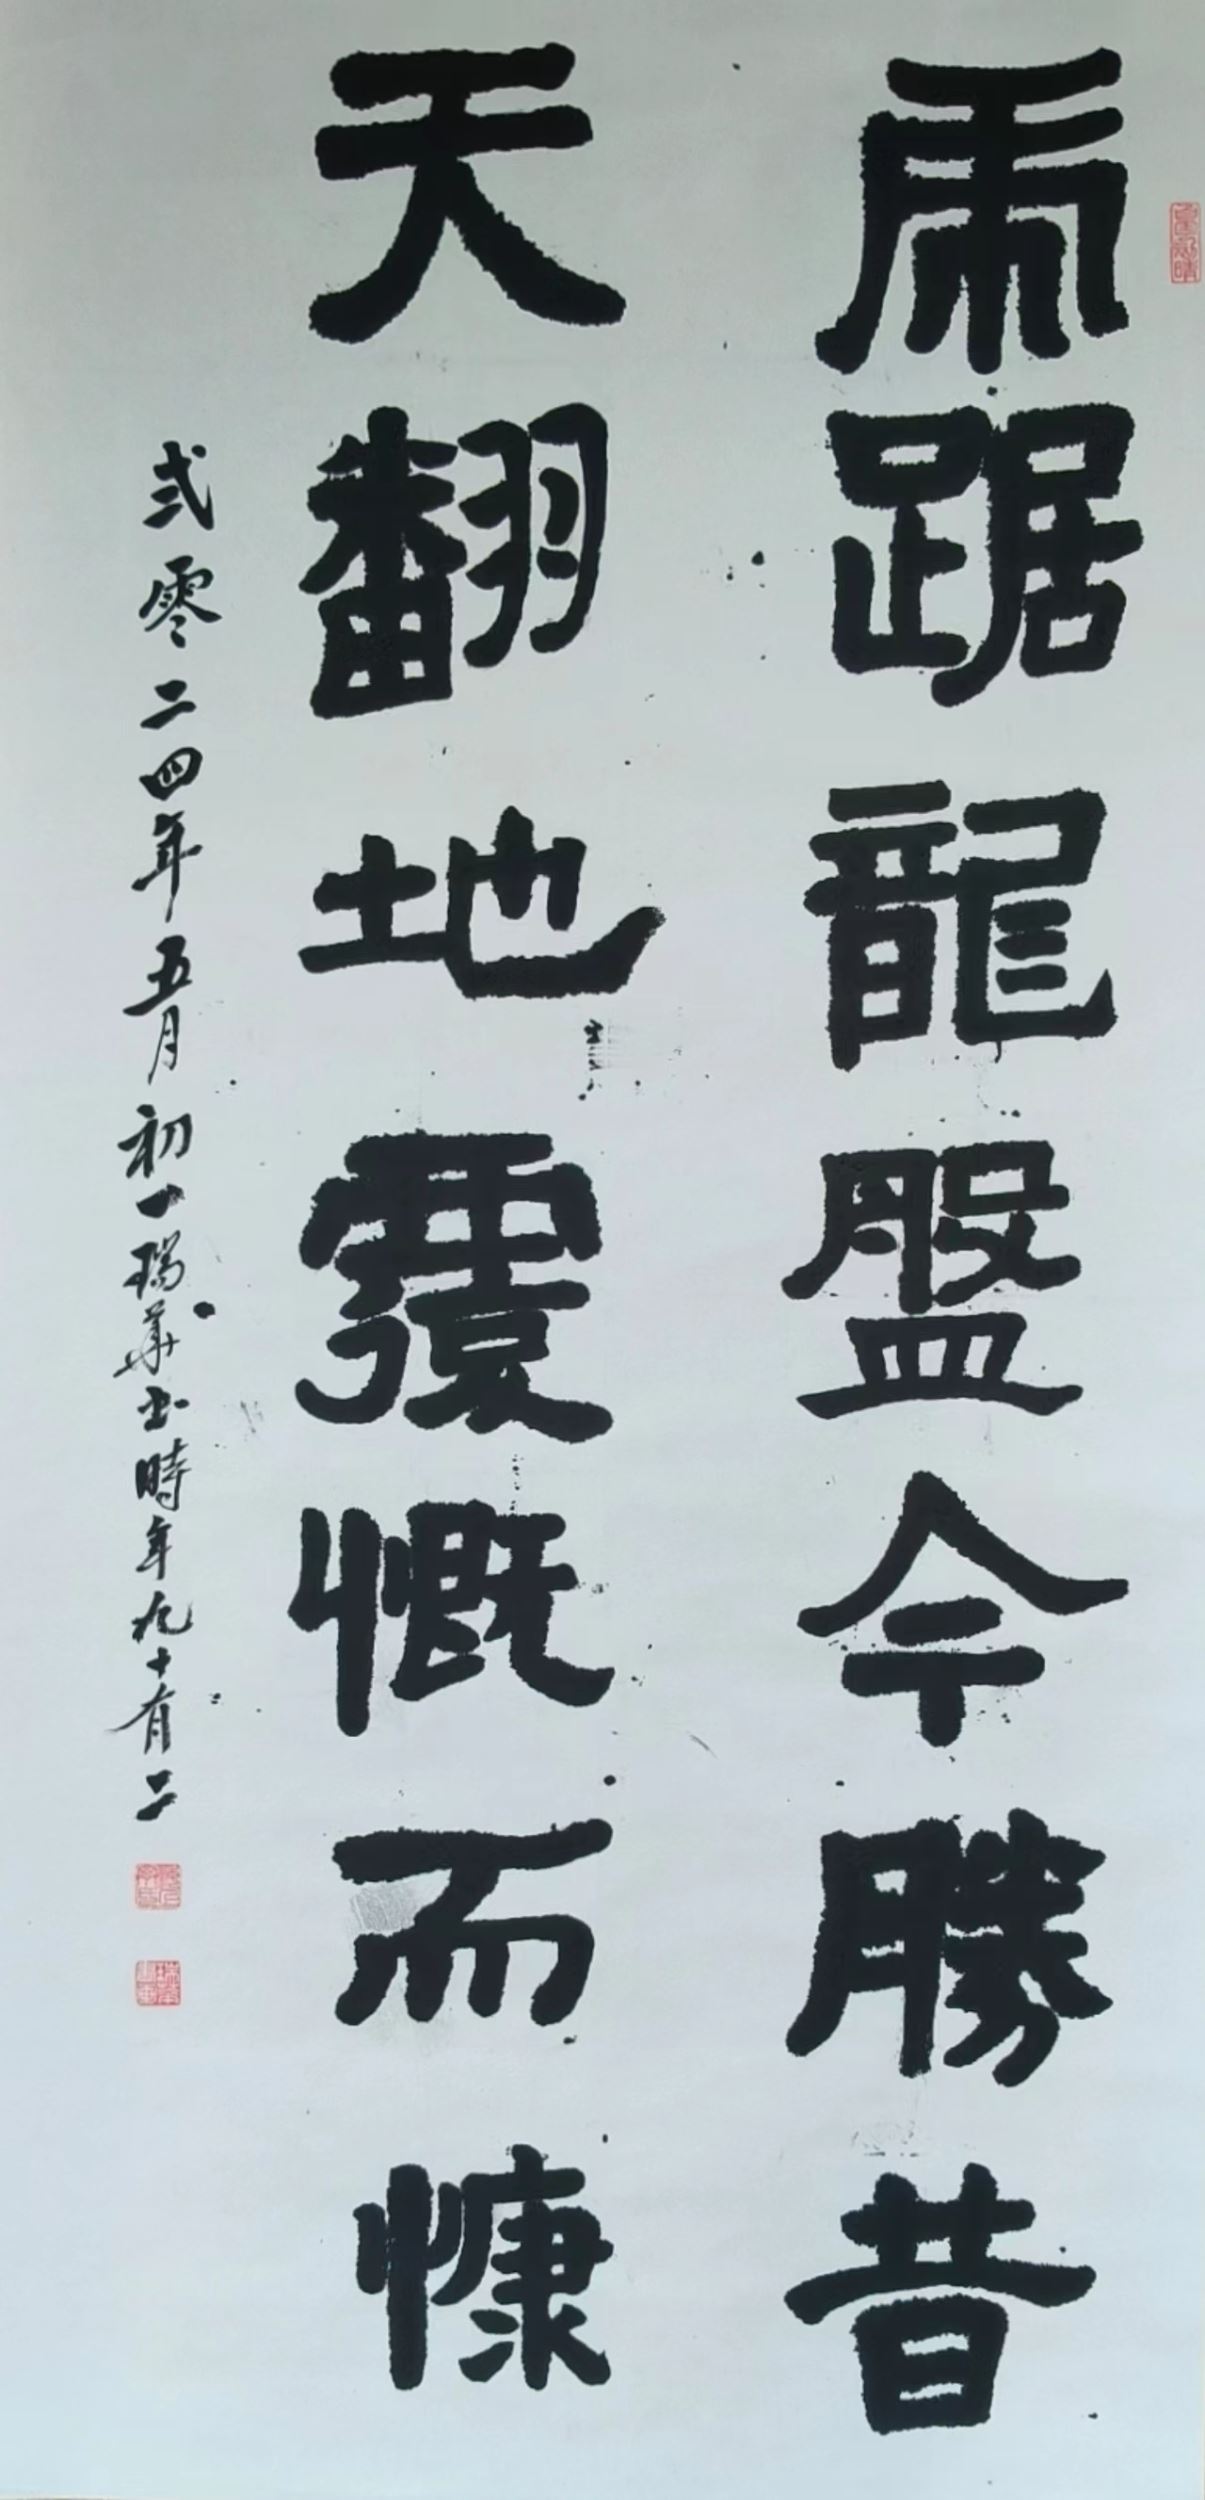 虎踞龍盤今勝昔
天翻地覆慨而慷
弍零二四年五月初一瑞華书時年九十有二